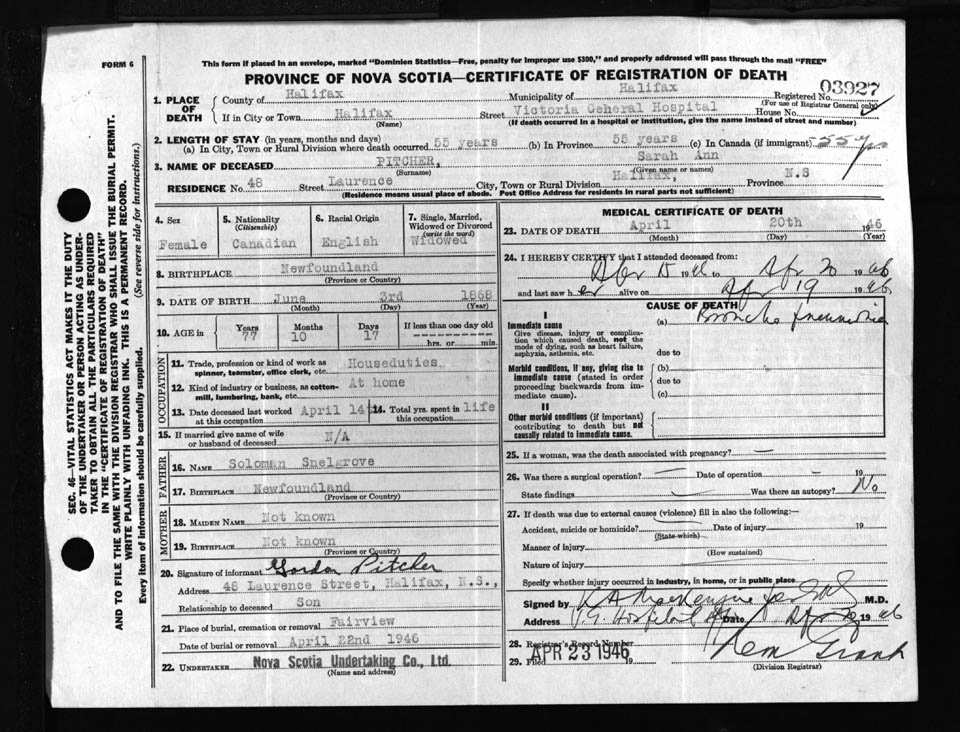 FORM 6
This form if placed in an envelope, marked "Dominion Statistics—Free, penalty for improper use $300," and properly addressed will pass through the mail "FREE"
PROVINCE OF NOVA SCOTIA—CERTIFICATE OF REGISTRATION OF DEATH
03927
1. PLACE OF DEATH
County of Halifax Municipality of Halifax Registered No.
(For use of Registrar General only)
If in City or Town Halifax Street Victoria Geheral Hospital House No.
(Name) (If death occurred in a hospital or institution, give the name instead of street and number)
2. LENGTH OF STAY (in years, months and days)
(a) In City, Town or Rural Division where death occurred 55 years (b) In Province 55 years (c) In Canada (if immigrant) 55 yrs
3. NAME OF DECEASED PITCHER, Sarah Ann
(Surname) (Given name or names)
RESIDENCE No. 48 Street Laurence City, Town or Rural Division Halifax, Province N.S
(Residence means usual place of abode. Post Office Address for residents in rural parts not sufficient)
4. Sex Female
5. Nationality (Citizenship) Canadian
6. Racial Origin English
7. Single, Married, Widowed or Divorced (write the word) Widowed
8. BIRTHPLACE Newfoundland
(Province or Country)
9. DATE OF BIRTH June 3rd 1868
(Month) (Day) (Year)
10. AGE in Years 77 Months 10 Days 17 If less than one day old hrs. or min.
OCCUPATION
11. Trade, profession or kind of work as spinner, teamster, office clerk, etc. Houseduties
12. Kind of industry or business, as cotton-mill, lumbering, bank, etc. At home
13. Date deceased last worked at this occupation April 14th
14. Total yrs. spent in this occupation life
15. If married give name of wife or husband of deceased N/A
FATHER
16. NAME Soloman Snelgrove
17. BIRTHPLACE Newfoundland
(Province or Country)
MOTHER
18. MAIDEN NAME Not known
19. BIRTHPLACE Not known
(Province or Country)
20. Signature of informant Gordon Pitcher
Address 48 Laurence Street, Halifax, N.S.,
Relationship to deceased Son
21. Place of burial, cremation or removal Fairview
Date of burial or removal April 22nd 1946
22. UNDERTAKER Nova Scotia Undertaking Co., Ltd.
(Name and address)
MEDICAL CERTIFICATE OF DEATH
23. DATE OF DEATH April 20th 1946
(Month) (Day) (Year)
24. I HEREBY CERTIFY that I attended deceased from:
Apr 15 1946 to Apr 20 1946
and last saw her alive on Apr 19 1946
CAUSE OF DEATH
I
Immediate cause (a) Broncho pneumonia
Give disease, injury or complication which caused death, not the mode of dying, such as heart failure, asphyxia, asthenia, etc.
due to
Morbid conditions, if any, giving rise to immediate cause (stated in order proceeding backwards from immediate cause).
(b)
due to
(c)
II
Other morbid conditions (if important) contributing to death but not causally related to immediate cause.
25. If a woman, was the death associated with pregnancy? —
26. Was there a surgical operation? — Date of operation — 19
State findings — Was there an autopsy? No
27. If death was due to external causes (violence) fill in also the following:—
Accident, suicide or homicide? Date of injury 19
(State which)
Manner of injury
(How sustained)
Nature of injury
Specify whether injury occurred in industry, in home, or in public place
Signed by M.D.
Address V.G. Hospital Date Apr 1946
28. Registrar's Record Number
29. Filed APR 23 1946 19
(Division Registrar)
SEC. 46—VITAL STATISTICS ACT MAKES IT THE DUTY
OF THE UNDERTAKER OR PERSON ACTING AS UNDER-
TAKER TO OBTAIN ALL THE PARTICULARS REQUIRED
IN THE "CERTIFICATE OF REGISTRATION OF DEATH"
AND TO FILE THE SAME WITH THE DIVISION REGISTRAR WHO SHALL ISSUE THE BURIAL PERMIT.
WRITE PLAINLY WITH UNFADING INK. THIS IS A PERMANENT RECORD.
Every item of information should be carefully supplied. (See reverse side for instructions.)